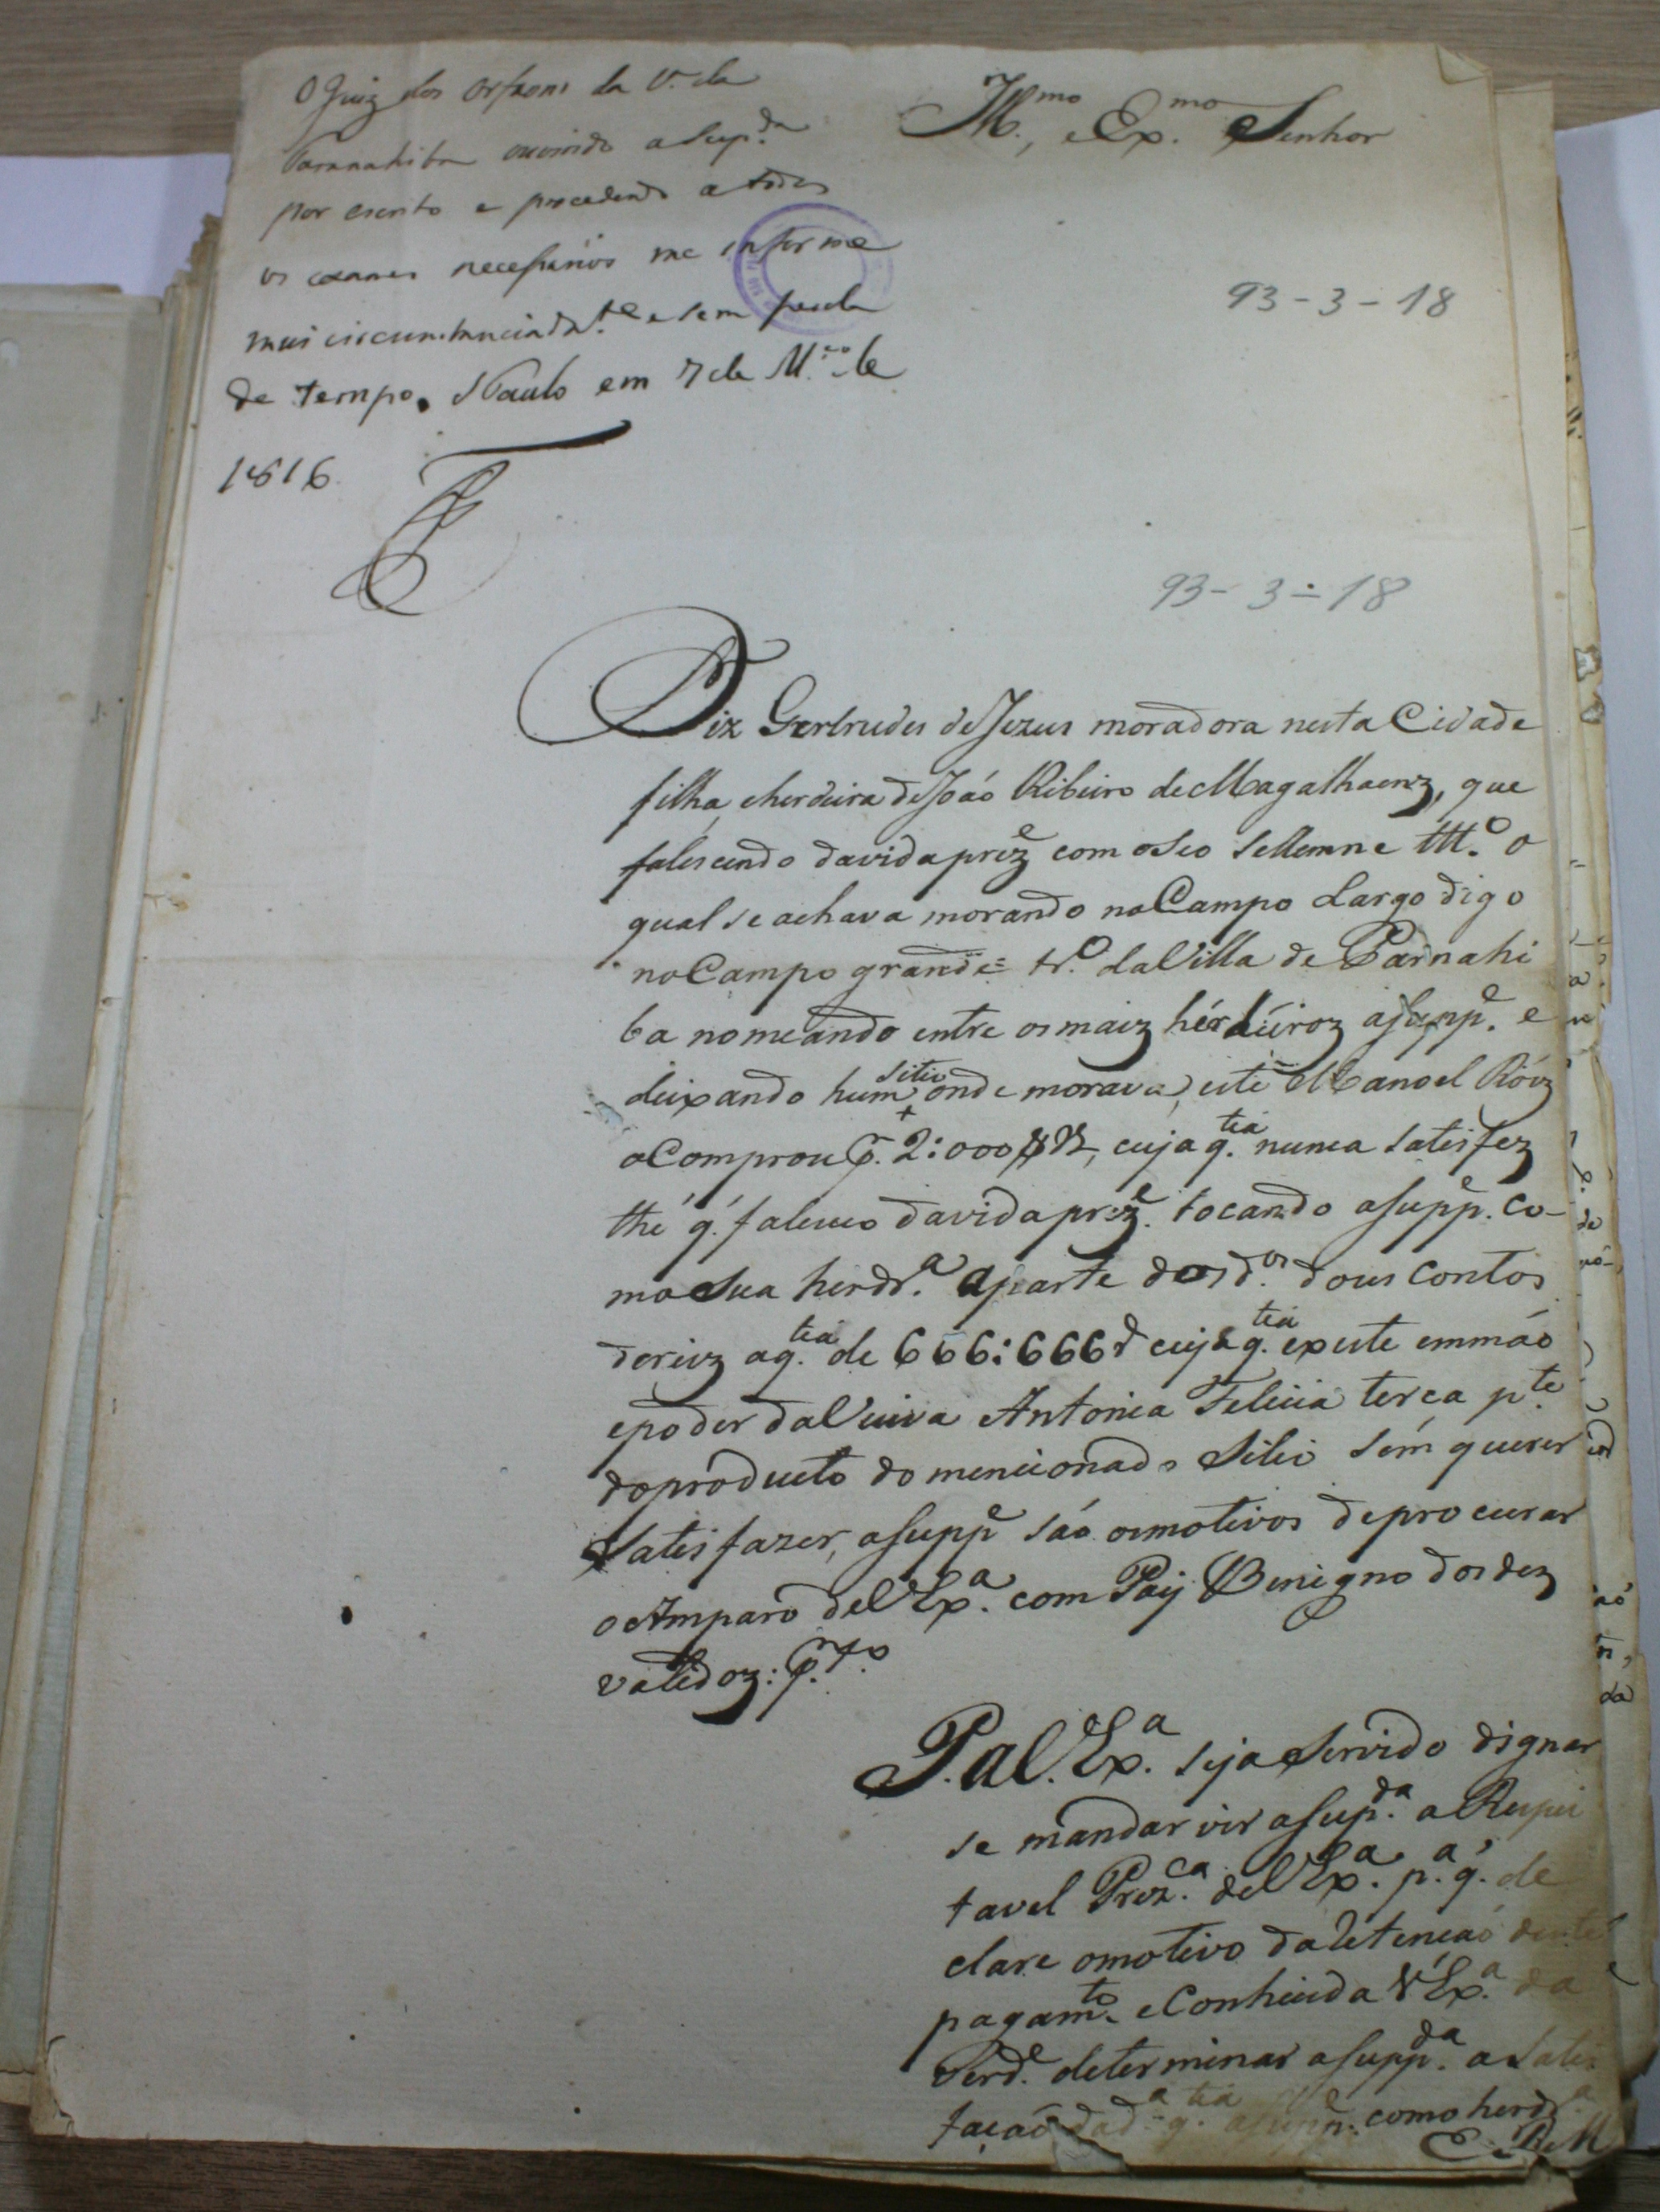 O Juiz dos Orfaons da V.ª da
Parnahiba ouvindo a Sup.da
por escrito e procedendo a todos
os exames necessarios me informe
mui circunstanciadam.te e sem perda
de tempo. S Paulo em 7 de M.ço de
1816.
Ill.mo, e Ex.mo Senhor
93-3-18
93-3-18
Diz Gertrudes de Jezus moradora nesta Cidade
filha, e herdeira de Joáo Ribeiro de Magalhaenz, que
falescendo da vida prez.e com o Seo Sollemne tt.o o
qual se achava morando no Campo Largo digo
no Campo grande= tr.o da Villa de Parnahi
ba nomeando entre os maiz hérdeiroz a Supp.e e
deixando hum sitio onde morava, este Manoel Róiz
o Comprou p.r 2:000$rz, cuja q.tia nunca satisfez
thé q. faleceo da vida prez.e tocando a Supp.e co-
mo Sua herdr.a a parte dos d.os dous Contos
de reiz a q.tia de 666:666 cuja q.tia existe em máo
e poder da Viuva Antonia Felicia terca p.te
do producto do mencionado Sitio sem querer
Satisfazer, a Supp.e sáo os motivos de procurar
o Amparo de V Ex.a com Pay Benigno dos dez
validoz: p.r to
P. a V. Ex.a seja Servido dignar
se mandar vir a Sup.da a Respei
tavel Prez.ca de V Ex.a p.a q. de
clare o motivo da retencaó deste
pagam.to e Conhecida V Ex.a da
Verd.e determinar a Supp.da a Satis
facaó da d.a q.tia a Supp.e como herdr.a
E. R. M.